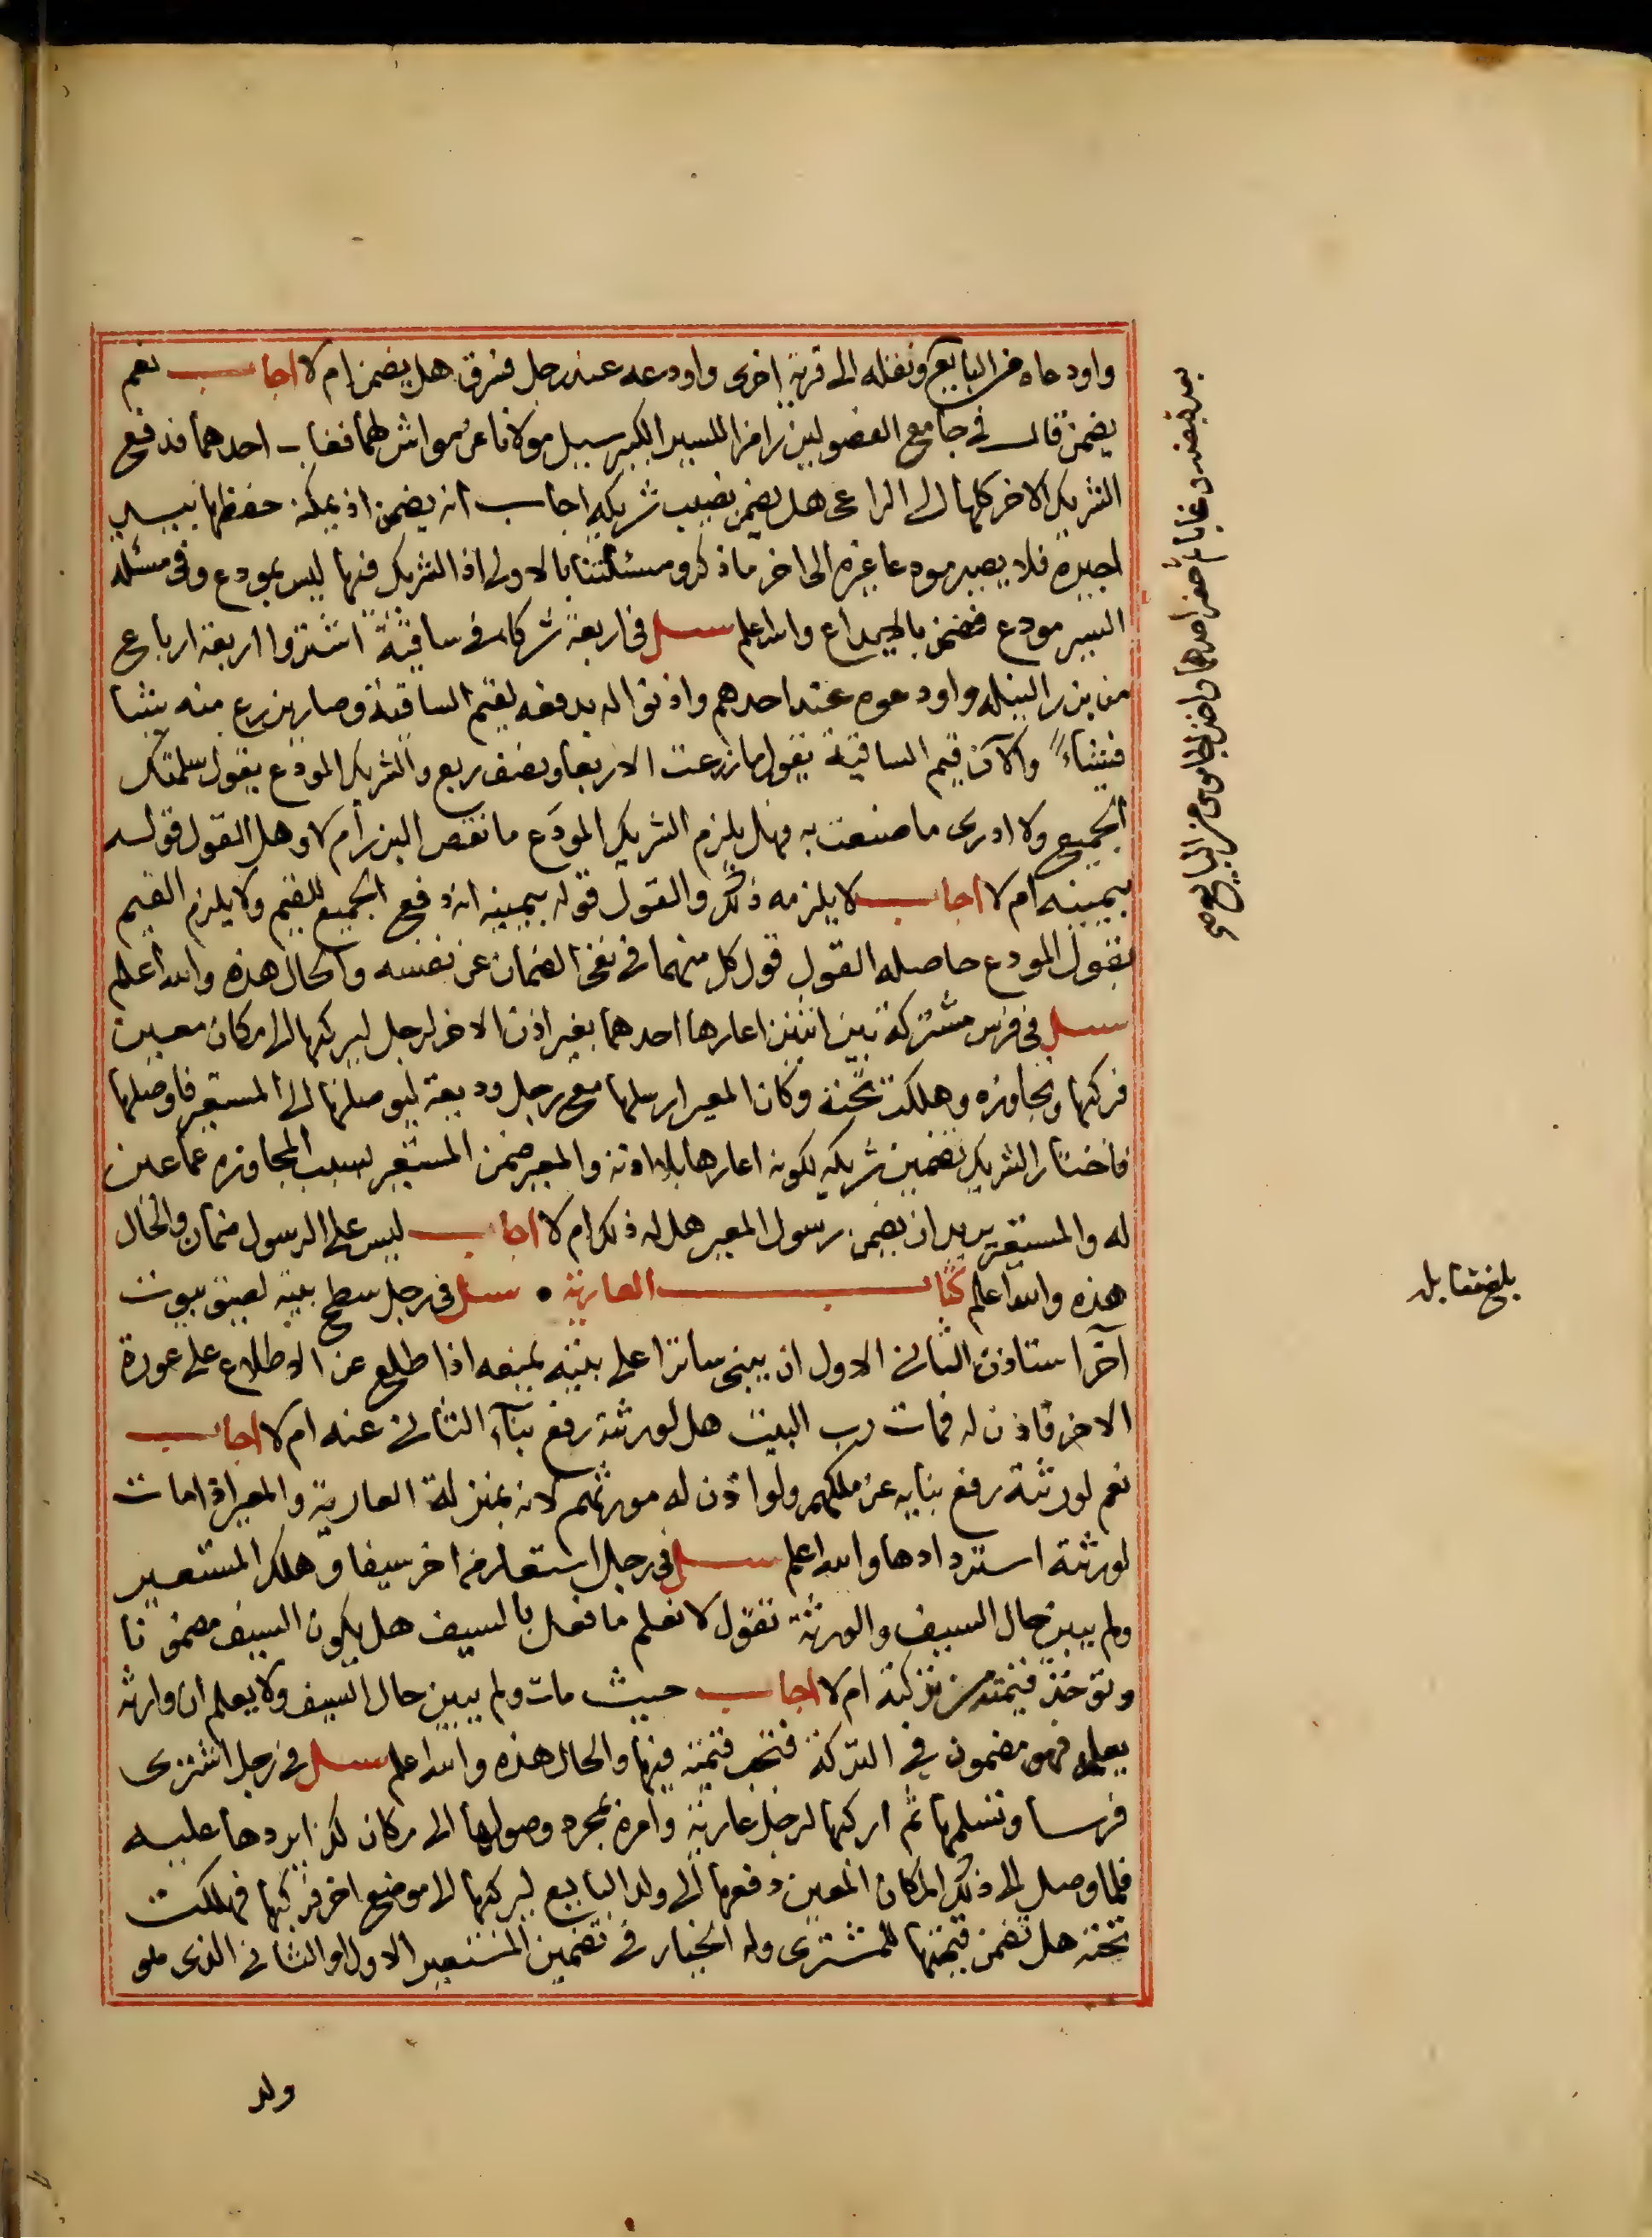 واودعاه من البايع ونقله الى قرية اخرى واودعه عند رجل فسرق هل يضمن ام لا اجاب نعم
يضمن قال في جامع الفصولين رامزا للسير الكبير سيل مولانا عن مواش لهما فغاب احدهما فدفع
الشريك الاخر كلها الى الراعى هل يضمن نصيب شريكه اجاب انه يضمن اذ يمكنه حفظها بيد
اجيره فلا يصير مودعا غيره الى اخر ما ذكر ومسئلتنا بالاولى اذ الشريك فيها ليس بمودع وفى مسئلة
السير مودع فضمن بالايداع والله اعلم سيل فى اربعة شركاء فى ساقية اشتروا اربعة ارباع
من بزر النيله واودعوه عند احدهم واذنوا له بدفعه لقيم الساقية وصار يزرع منه شيئا
فشيئاً والآن قيم الساقية يقول ما زرعت الا ربعا ونصف ربع والشريك المودع يقول سلمتك
الجميع ولا ادرى ما صنعت به فهل يلزم الشريك المودَع ما نقص البزر ام لا وهل القول قوله
بيمينه ام لا اجاب لا يلزمه ذلك والقول قوله بيمينه انه دفع الجميع للقيم ولا يلزم القيم
بقول المودع حاصله القول قول كل منهما فى نفى الضمان عن نفسه والحال هذه والله اعلم
سيل فى فرس مشتركة بين اثنين اعارها احدهما بغير اذن الاخر لرجل ليركبها الى مكان معين
فركبها وتجاوزه وهلكت تحته وكان المعير ارسلها مع رجل وديعة ليوصلها الى المستعير فاوصلها
فاختار الشريك تضمين شريكه لكونه اعارها بلا اذنه والمعير ضمن المستعير بسبب المجاوزه عما عين
له والمستعير يريد ان يضمن رسول المعير هل له ذلك ام لا اجاب ليس على الرسول ضمان والحال
هذه والله اعلم كتاب العارية • سيل فى رجل سطح بيته لصيق بيوت
آخر استاذن الثانى الاول ان يبنى ساترا على بيته يمنعه اذا طلع عن الاطلاع على عورة
الاخر فاذن له فمات رب البيت هل لورثته رفع بنآء الثانى عنه ام لا اجاب
نعم لورثته رفع بنايه عن ملكهم ولو اذن له مورثهم لانه بمنزلة العارية والمعير اذا مات
لورثته استردادها والله اعلم سيل فى رجل استعار من اخر سيفا وهلك المستعير
ولم يبين حال السيف والورثة تقول لا نعلم ما فعل بالسيف هل يكون السيف مضمونا
وتوخذ قيمته من تركته ام لا اجاب حيث مات ولم يبين حال السيف ولا يعلم ان وارثه
يعلمه فهو مضمون في التركة فتجب قيمته فيها والحال هذه والله اعلم سيل فى رجل اشترى
فرسا وتسلمها ثم اركبها لرجل عارية وامره بمجرد وصولها الى مكان كذا يردها عليه
فلما وصل الى ذلك المكان المعين دفعها الى ولد البايع ليركبها الى موضع اخر فركبها فهلكت
تحته هل تضمن قيمتها للمشترى وله الخيار فى تضمين المستعير الاول او الثانى الذى هو
ولد
احدهما واخذ الجاموس من البايع
بلغ مقابله